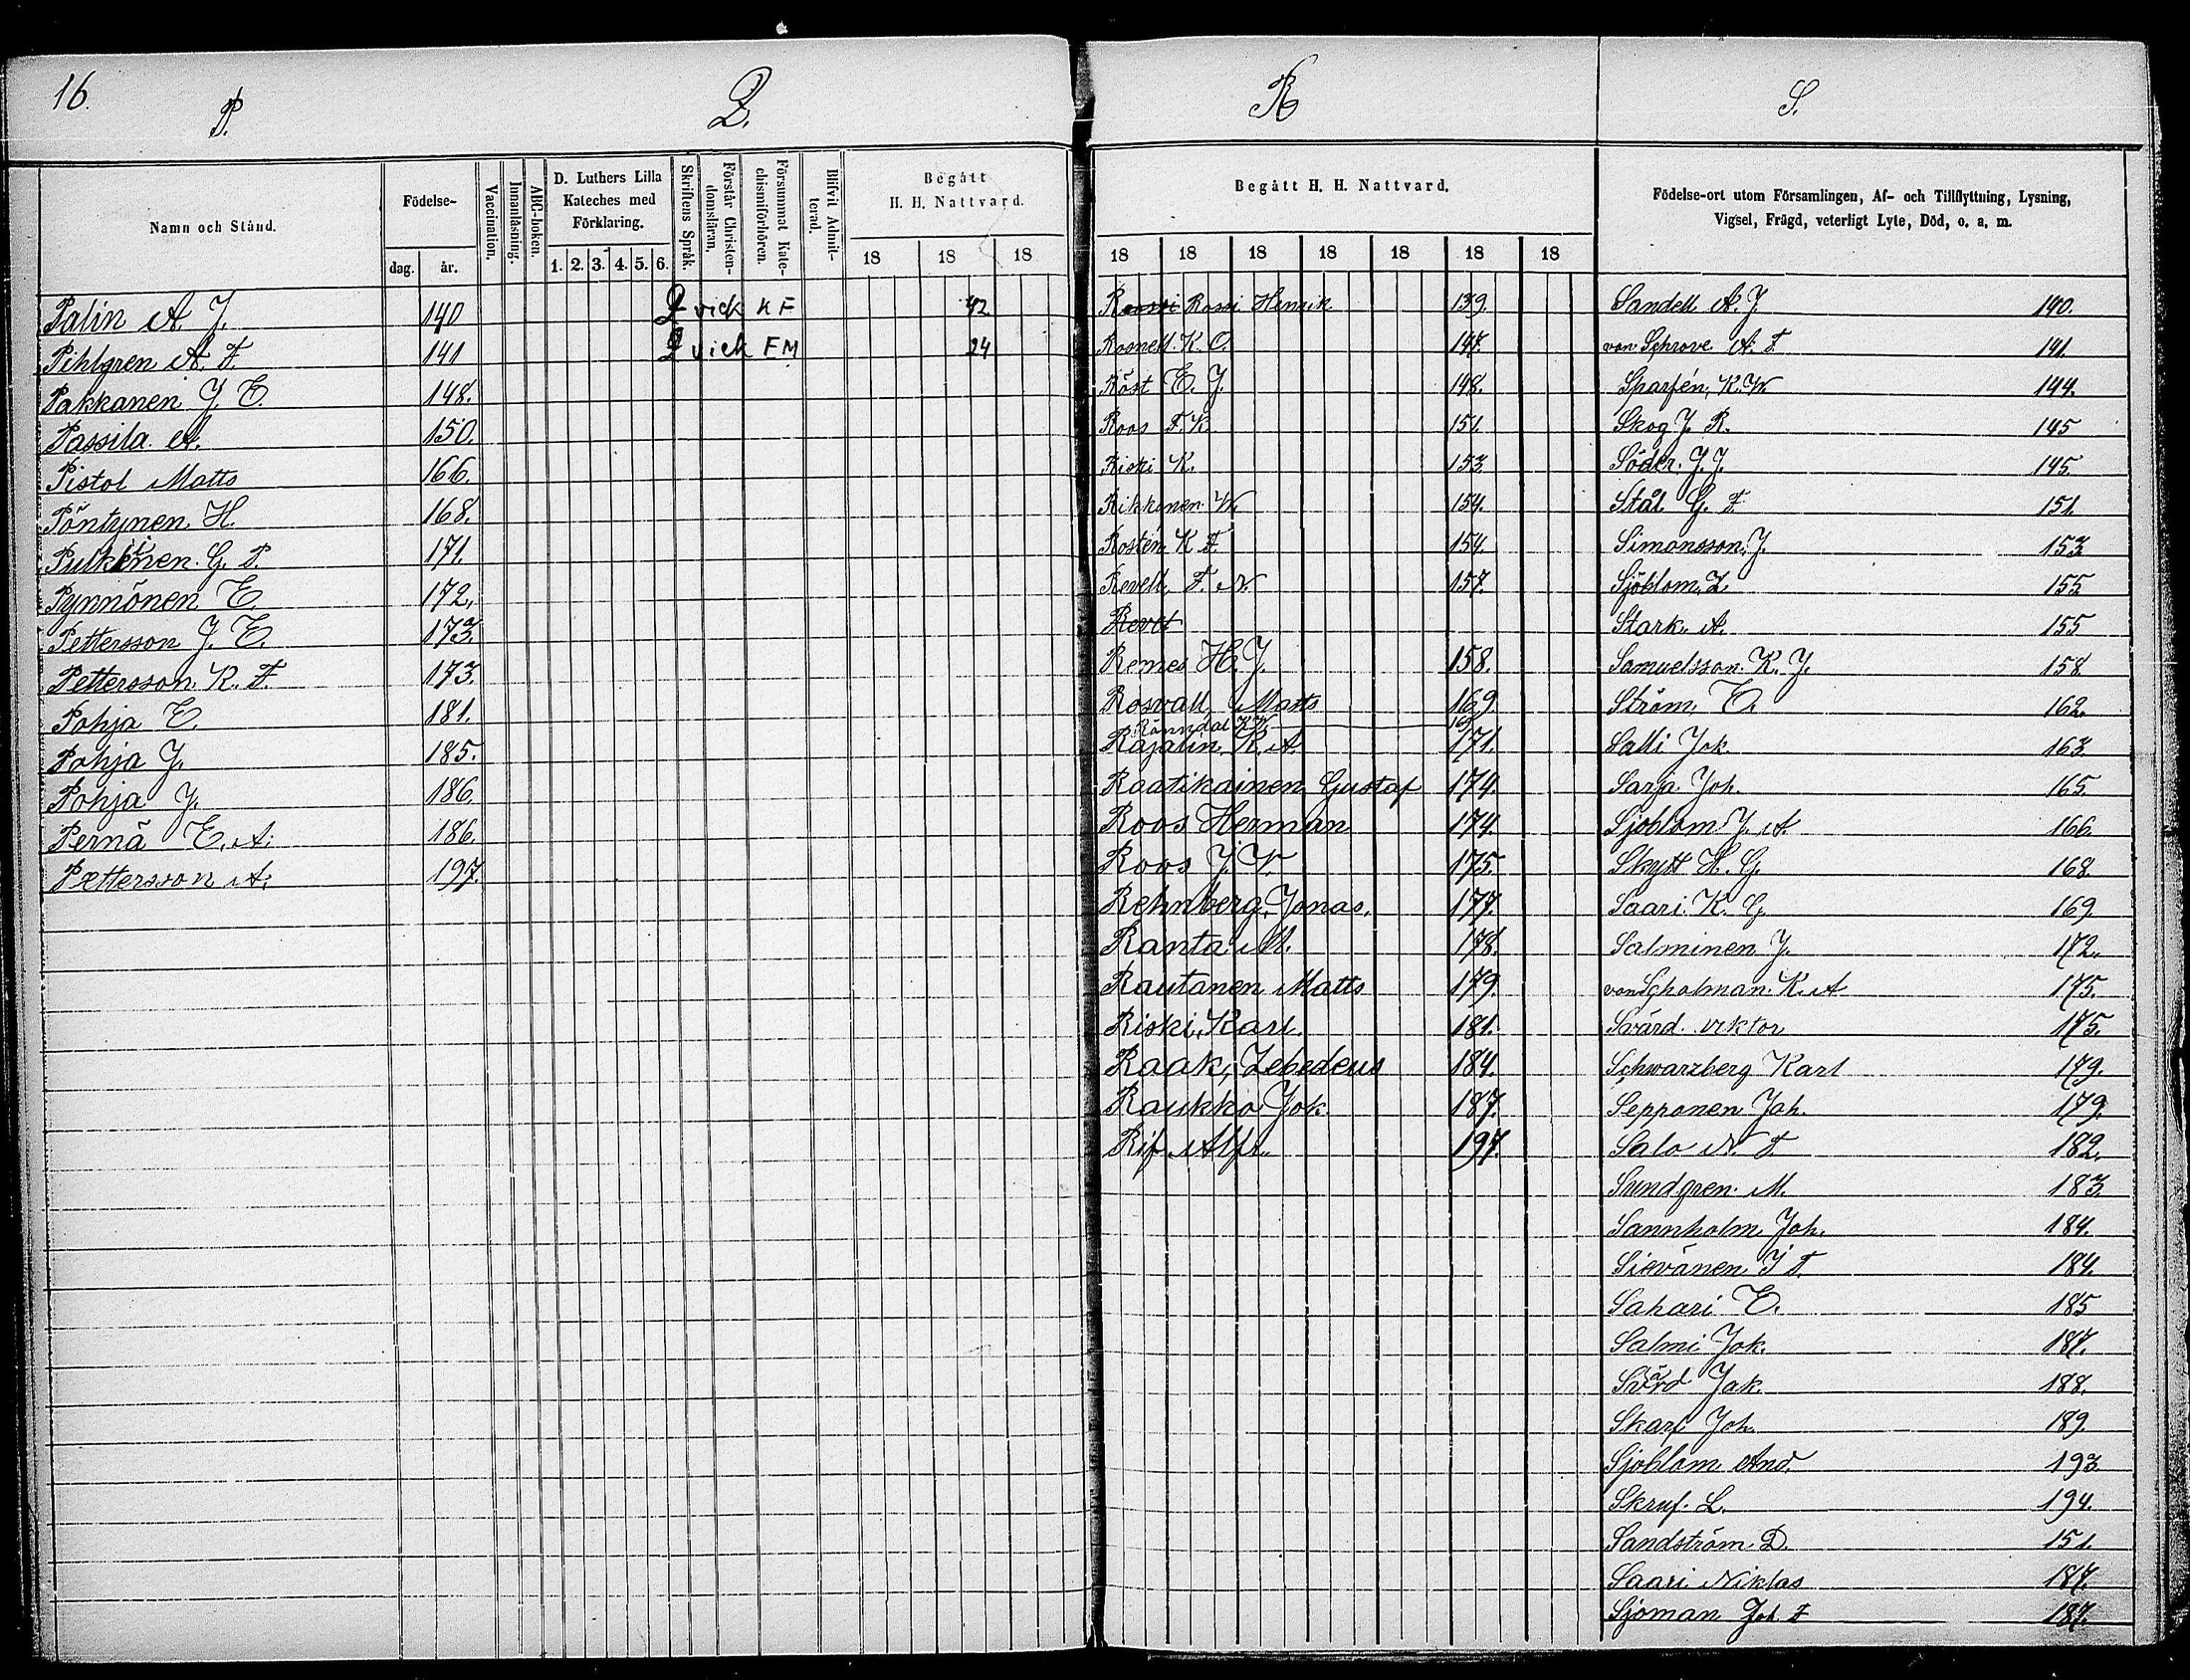 16.
P.
Q.
R
S.
Namn och Stånd.
Födelse-
dag.
år.
Vaccination.
Innanläsning.
ABC-boken.
D. Luthers Lilla
Kateches med
Förklaring.
1. 2. 3. 4. 5. 6.
Skriftens Språk.
Förstår Christen-
domsläran.
Försummat Kate-
chismiförhören.
Blifvit Admit-
terad.
Begått
H. H. Nattvard.
18 18 18
Begått H. H. Nattvard.
18 18 18 18 18 18 18
Födelse-ort utom Församlingen, Af- och Tillflyttning, Lysning,
Vigsel, Frägd, veterligt Lyte, Död, o. a. m.
Palin A. J. 140
Pihlgren A. F. 141
Pakkanen J. E. 148.
Passila A. 150.
Pistol Matts 166.
Pöntynen H. 168.
Pulkkinen G. P. 171.
Pynnönen E. 172.
Pettersson J. E. 173.
Pettersson K. F. 173.
Pohja E. 181.
Pohja J. 185.
Pohja J. 186.
Pernä E. A. 186.
Pettersson A. 197.
Qvick K F 42.
Qvick F M 24
Rossi Henrik 139.
Rosnell K. O. 147.
Röst E. J. 148.
Roos F. K. 151.
Riski K. 153
Rikkonen W. 154.
Rostén K. F. 154.
Revell F. N. 157.
Revel
Remes H. J. 158.
Rosvall, Matts 169
Rönndal K W 169
Rajalin K. A. 171.
Raatikainen Gustaf 174.
Roos Herman 174.
Roos J. V. 175.
Rehnberg, Jonas. 177.
Ranta M. 178.
Rautanen Matts 179.
Riski, Karl. 181.
Raak, Zebedeus 184.
Raukko Jok 187.
Rif Alfr. 197.
Sandell A. J. 140.
von Schrove A. F. 141.
Sparfén, K. W. 144.
Skog J. R. 145
Söder. J. J. 145.
Stål G. F. 151.
Simonsson, J. 153
Sjöblom, Z 155
Stark. A. 155
Samuelsson. K. J. 158
Ström, E. 162.
Salli Jok. 163.
Sarja Joh. 165.
Sjöblom J. A. 166.
Skytt H. G. 168.
Saari. K. G. 169.
Salminen J. 172.
von Scholman. K. A 175.
Svärd. viktor 175.
Schwarzberg Karl 179.
Sepponen Joh. 179.
Salo N. F. 182.
Sundgren M. 183
Sannholm Joh. 184.
Sievänen J F. 184.
Sahari E. 185
Salmi Jok. 187.
Svärd Jak. 188.
Skarp Joh. 189.
Sjöblom And. 193
Skruf. L. 194.
Sandström D. 151.
Saari Niklas 187.
Sjöman Joh. F 187.